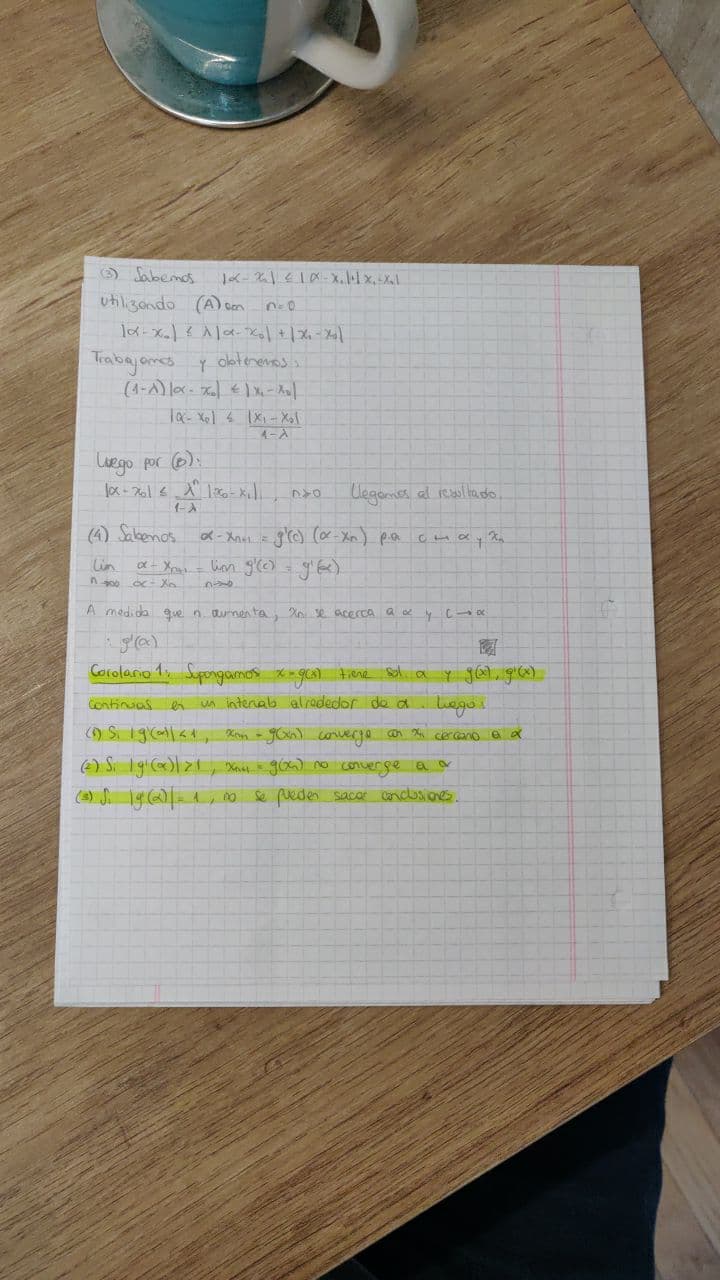 (3) Sabemos |α - x₀| ≤ |α - x₁| + |x₁ - x₀|
utilizando (A) con n=0
|α - x₀| ≤ λ|α - x₀| + |x₁ - x₀|
Trabajamos y obtenemos:
(1-λ)|α - x₀| ≤ |x₁ - x₀|
|α - x₀| ≤ |x₁ - x₀| / 1-λ
Luego por (B):
|α - x₀| ≤ λⁿ / 1-λ |x₀ - x₁|, n>0 Llegamos al resultado.
(4) Sabemos α - xₙ₊₁ = g'(c) (α - xₙ) p.a c ↔ α y xₙ
lim n→∞ α - xₙ₊₁ / α - xₙ = lim n→∞ g'(c) = g'(α)
A medida que n aumenta, xₙ se acerca a α y c → α
∴ g'(α)
Corolario 1: Supongamos x = g(x) tiene sol. α y g(x), g'(x)
continuas en un intervalo alrededor de α. Luego:
(1) Si |g'(α)| < 1, xₙ₊₁ = g(xₙ) converge con xₙ cercano a α
(2) Si |g'(α)| > 1, xₙ₊₁ = g(xₙ) no converge a α
(3) Si |g'(α)| = 1, no se pueden sacar conclusiones.